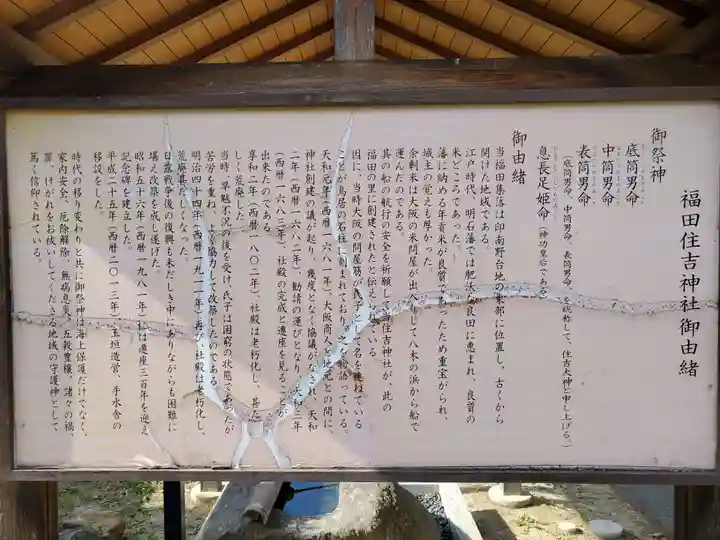 福田住吉神社御由緒
御祭神
底筒男命
中筒男命
表筒男命
(底筒男命、中筒男命、表筒男命、を総称して、住吉大神と申し上げる。)
息長足姫命(神功皇后である)
御由緒
当福田集落は印南野台地の東部に位置し、古くから
開けた地域である。
江戸時代、明石藩では肥沃な良田に恵まれ、良質の
米どころであった。
藩に納める年貢米が良質であったため重宝がられ、
城主の覚えも厚かった。
余剰米は大阪の米問屋が出入りして八木の浜から船で
運んだのである。
其の船の航行の安全を祈願して当住吉神社が、此の
福田の里に創建されたと伝えられている。
因に、当時大阪の問屋筋が氏子として名を連ねている
ことが鳥居の石柱に刻まれており、之を物語っている。
天和元年(西暦一六八一年)大阪商人と地元との間に、
神社創建の議が起り、幾度となく協議がなされ、天和
二年(西暦一六八二年)、勧請の運びとなり、天和三年
(西暦一六八三年)、社殿の完成と遷座を見ることが
出来たのである。
享和二年(西暦一八〇二年)、社殿は老朽化し、甚だ
しく荒廃した。
当時、旱魃不況の後を受け、氏子は困窮の状態であったが
苦労を重ね、よく協力して改築したのである。
明治四十四年(西暦一九一一年)再び、社殿は老朽化し、
荒廃甚だしくなった。
日露戦争後の復興も未だしき中にありながらも困難に
堪え修築を成し遂げた。
昭和五十六年(西暦一九八一年)には遷座三百年を迎え
記念碑を建立した。
平成二十五年(西暦二〇一三年)、玉垣造営、手水舎の
移設をした。
時代の移り変わりと共に御祭神は海上保護だけでなく、
家内安全、厄除解除、無病息災、五穀豊穣、諸々の禍、
罪、けがれをお祓いしてくださる地域の守護神として
篤く信仰されている。